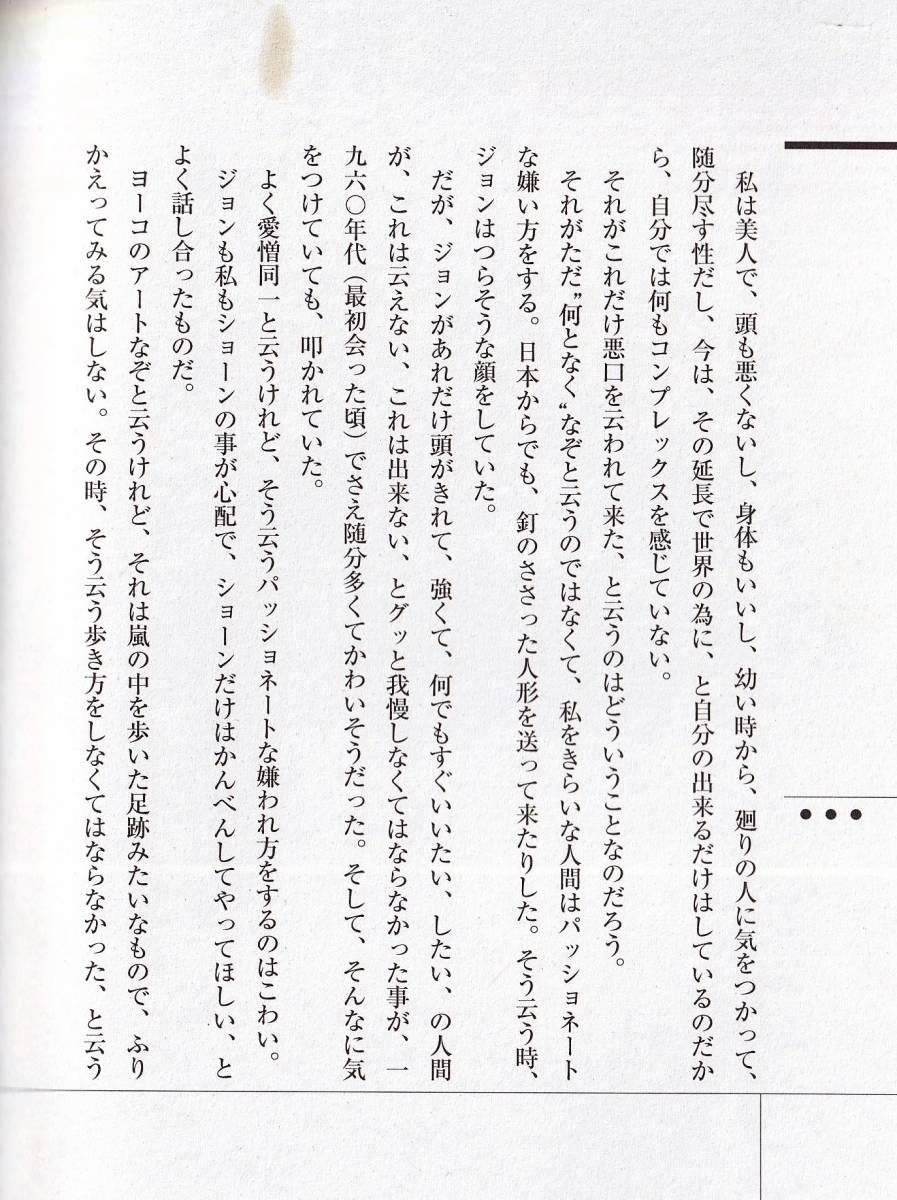 私は美人で、頭も悪くないし、身体もいいし、幼い時から、廻りの人に気をつかって、
随分尽す性だし、今は、その延長で世界の為に、と自分の出来るだけはしているのだか
ら、自分では何もコンプレックスを感じていない。
それがこれだけ悪口を云われて来た、と云うのはどういうことなのだろう。
それがただ〞何となく〝なぞと云うのではなくて、私をきらいな人間はパッショネート
な嫌い方をする。日本からでも、釘のささった人形を送って来たりした。そう云う時、
ジョンはつらそうな顔をしていた。
だが、ジョンがあれだけ頭がきれて、強くて、何でもすぐいいたい、したい、の人間
が、これは云えない、これは出来ない、とグッと我慢しなくてはならなかった事が、一
九六〇年代（最初会った頃）でさえ随分多くてかわいそうだった。そして、そんなに気
をつけていても、叩かれていた。
よく愛憎同一と云うけれど、そう云うパッショネートな嫌われ方をするのはこわい。
ジョンも私もショーンの事が心配で、ショーンだけはかんべんしてやってほしい、と
よく話し合ったものだ。
ヨーコのアートなぞと云うけれど、それは嵐の中を歩いた足跡みたいなもので、ふり
かえってみる気はしない。その時、そう云う歩き方をしなくてはならなかった、と云う